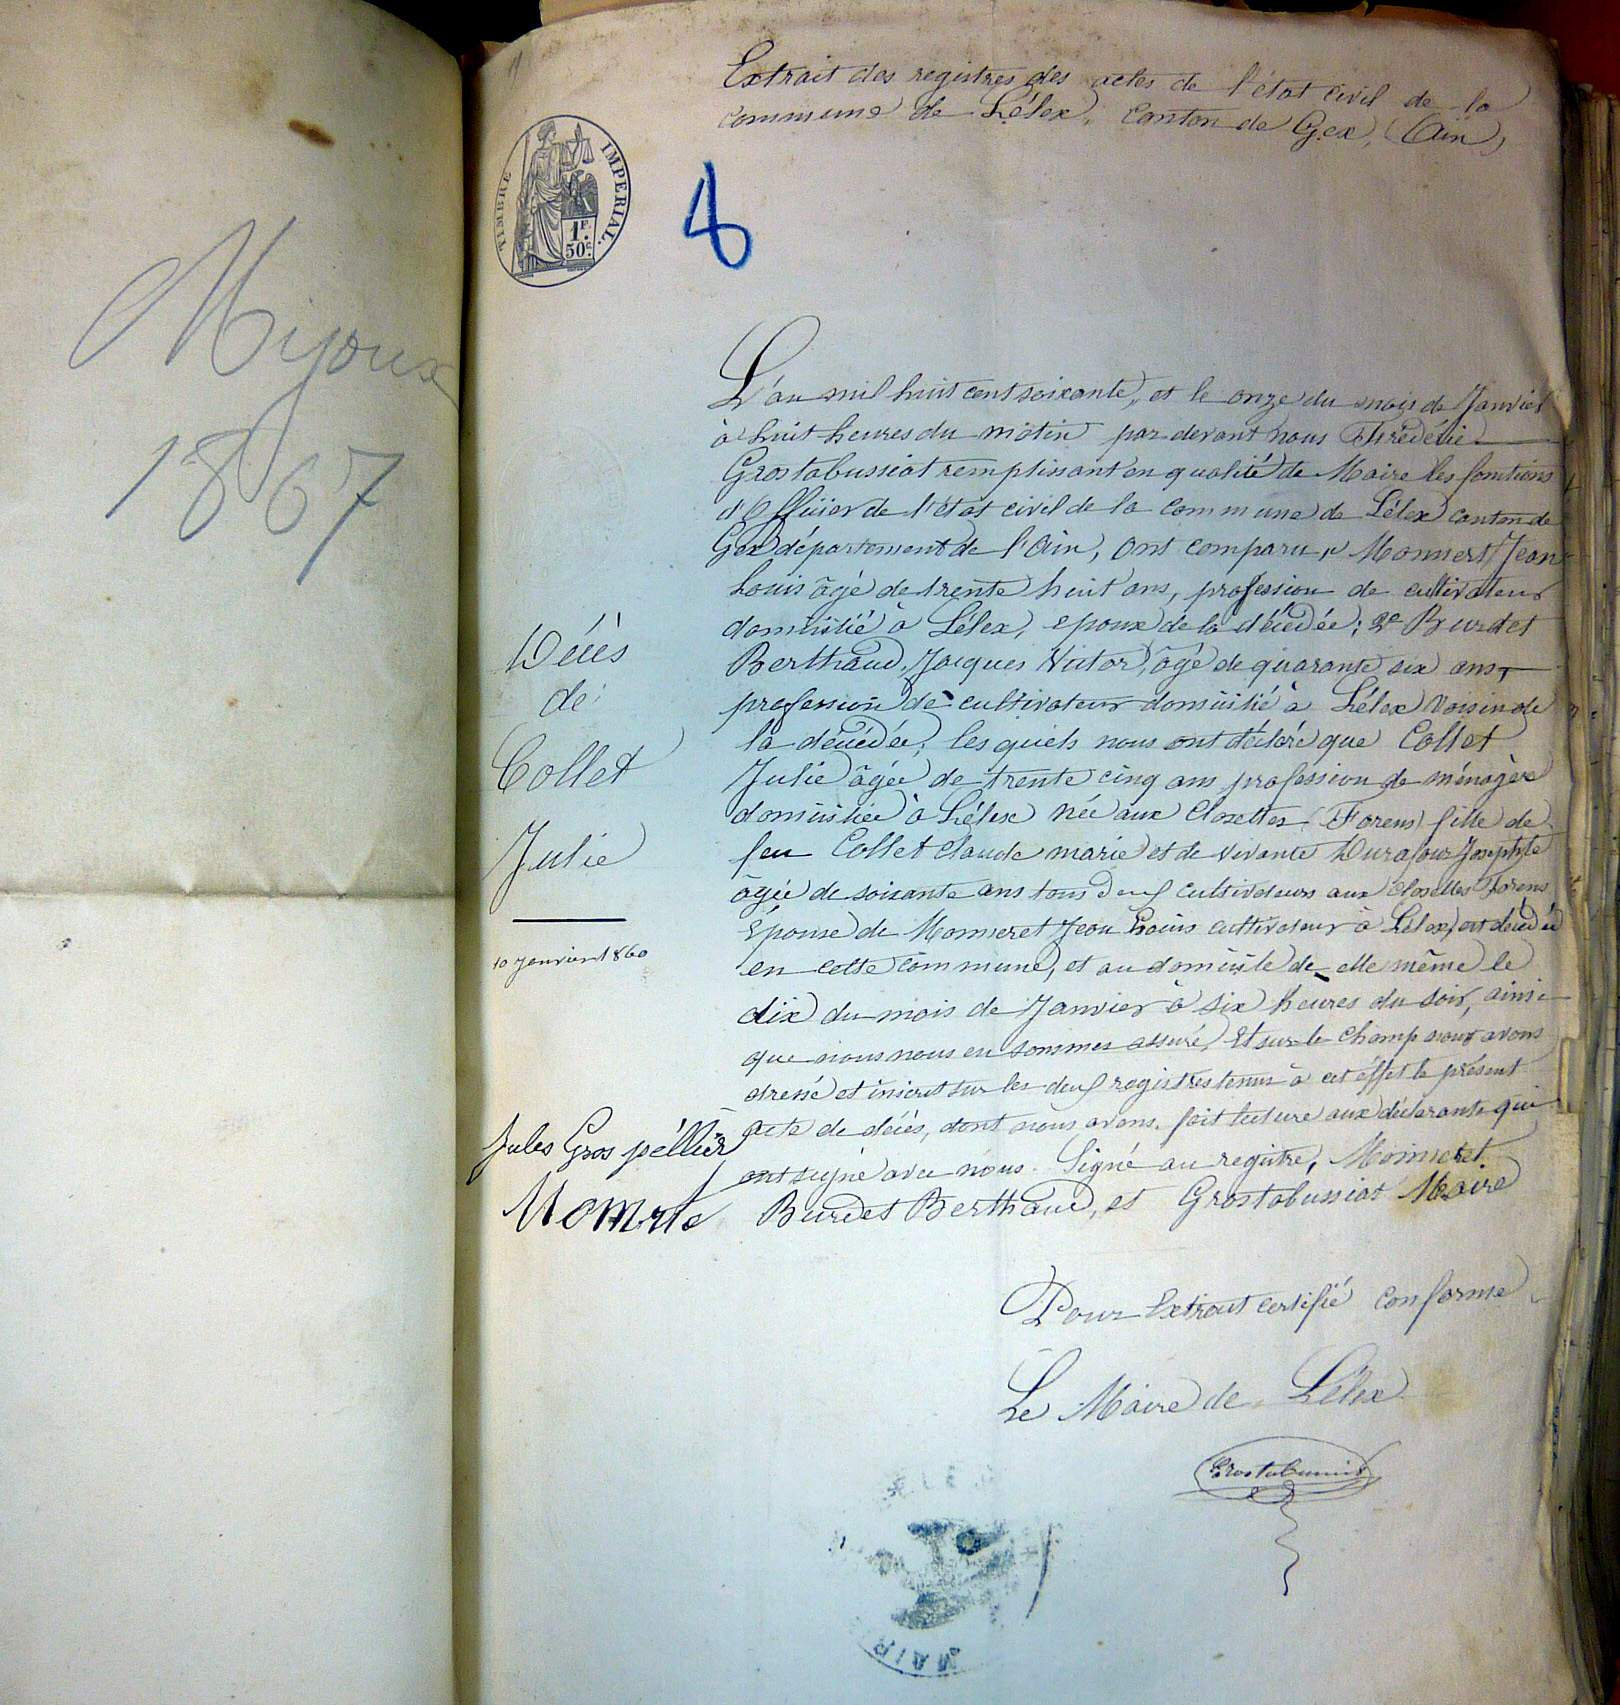 Mijoux
1867
Extrait des registres des actes de l'état civil de la
commune de Lélex, Canton de Gex, (Ain)
TIMBRE IMPERIAL.
1F.
50c.
8
L'an mil huit cent soixante, et le onze du mois de Janvier
à huit heures du matin par devant nous Fhrédéric
Grostabussiat remplissant en qualité de Maire les fonctions
d'Officier de l'état civil de la commune de Lélex canton de
Gex département de l'Ain, ont comparu, Monneret Jean
Louis âgé de trente huit ans, profession de cultivateur
domicilié à Lélex, epoux de la décédée; 2e Burdet
Berthaud Jacques Victor, âgé de quarante six ans,
profession de cultivateur domicilié à Lélex voisin de
la décédée, les quiels nous ont déclaré que Collet
Julie âgée de trente cinq ans profession de ménagère
domiciliée à Lélex née aux Closettes (Forens) fille de
feu Collet Claude marie et de vivante Durafour Josephte
âgée de soixante ans tous deux cultivateurs aux Closettes Forens
Épouse de Monneret Jean Louis cultivateur à Lélex, est décédée
en cette commune, et au domicile de elle même le
dix du mois de Janvier à six heures du soir, ainsi
que nous nous en sommes assuré, Et sur le champ nous avons
dressé et inscrit sur les deux registres tenus à cet éffet le présent
acte de décès, dont nous avons fait lecture aux déclarants qui
ont signé avec nous. Signé au registre, Monneret
Burdet Berthaud, et Grostabussiat Maire
Décès
de
Collet
Julie
10 Janvier 1860
Jules Gros péllier
Pour Extrait certifié conforme
Le Maire de Lélex
Grostabussiat
MAIR